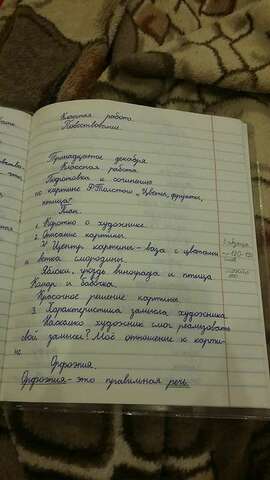 Классная работа.
Повествование.
Тринадцатое декабря.
Классная работа.
Подготовка к сочинению
по картине Ф. Толстого „Цветы, фрукты,
птица"
План.
1. Коротко о художнике.
2. Описание картины.
Центр картины - ваза с цветами
и ветка смородины.
Яблоки, гроздь винограда и птица
Комар и бабочка.
Красочное решение картины.
3. Характеристика замысла художника
Насколько художник смог реализовать
свой замысел? Моё отношение к карти-
не
Орфоэпия.
Орфоэпия - это правильная речь.